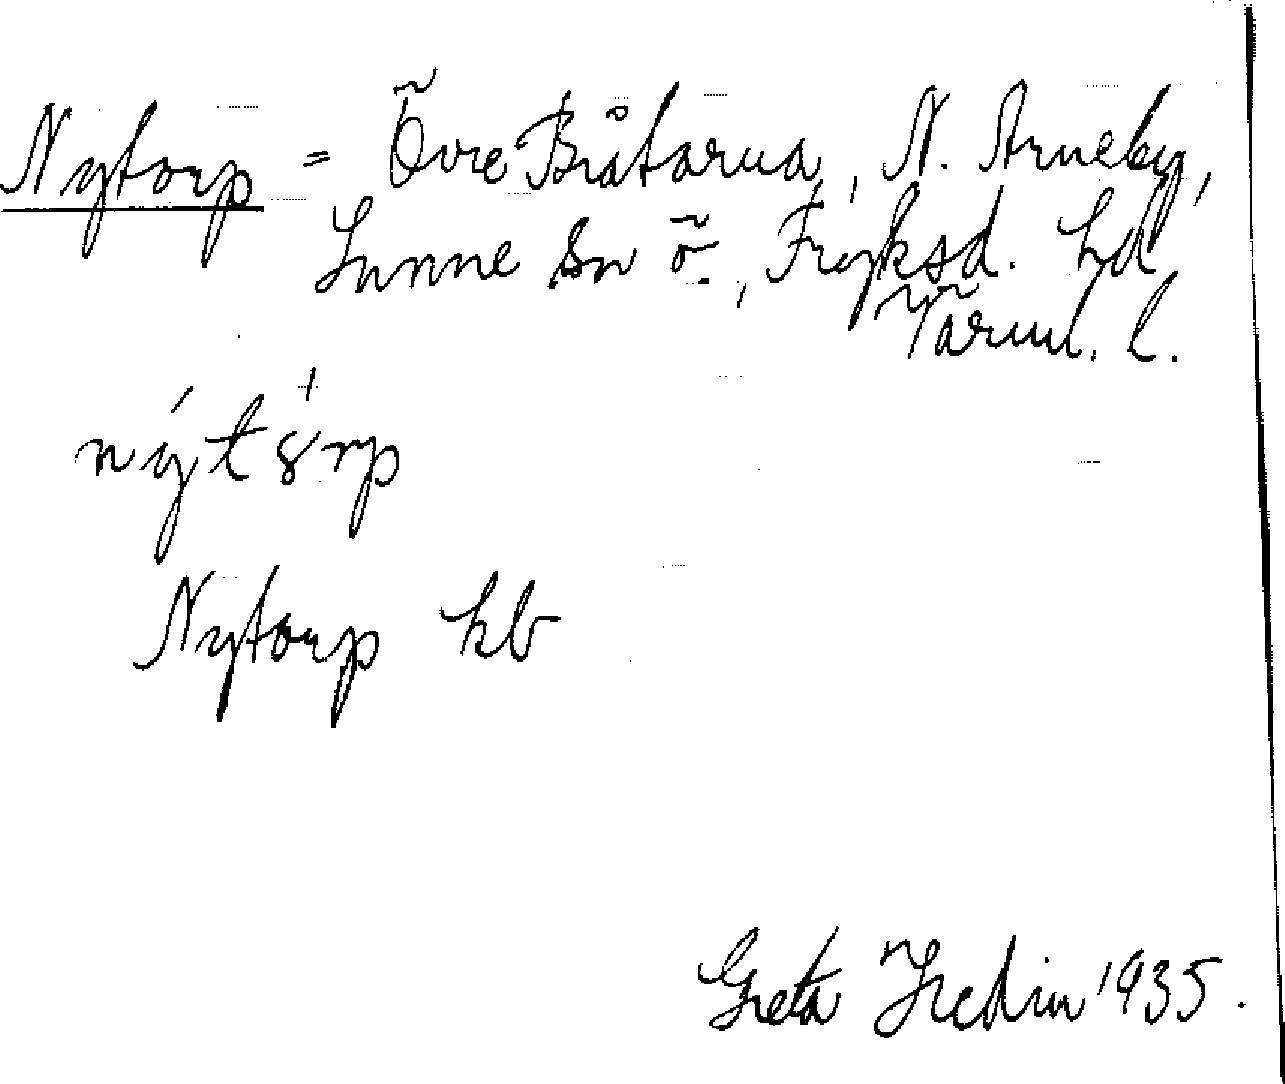 Nytorp = Övre Bråtarna, N. Arneby,
Sunne sn ö., Fryksd. hd,
Värml. l.
nýt8rp
Nytorp kb
Greta Hedin 1935.